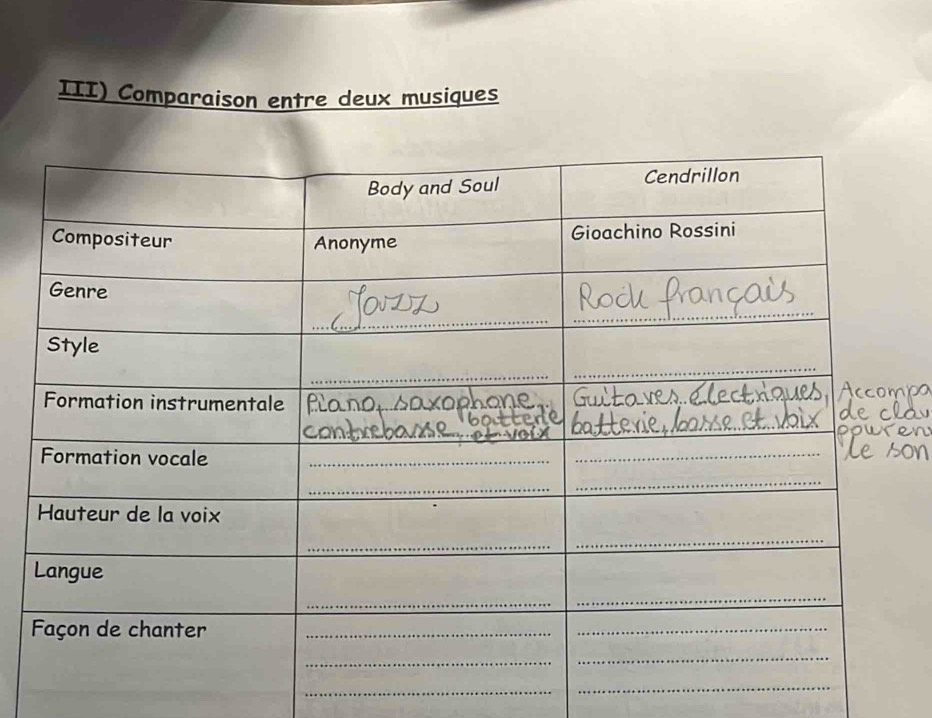 III) Comparaison entre deux musiques
Body and Soul Cendrillon
Compositeur Anonyme Gioachino Rossini
Genre Jazz Rock français
Style
Formation instrumentale Piano, saxophone, Guitares électriques, Accompa
batterie
contrebasse, et voix batterie, basse et voix de clav
pour en
Formation vocale le son
Hauteur de la voix
Langue
Façon de chanter